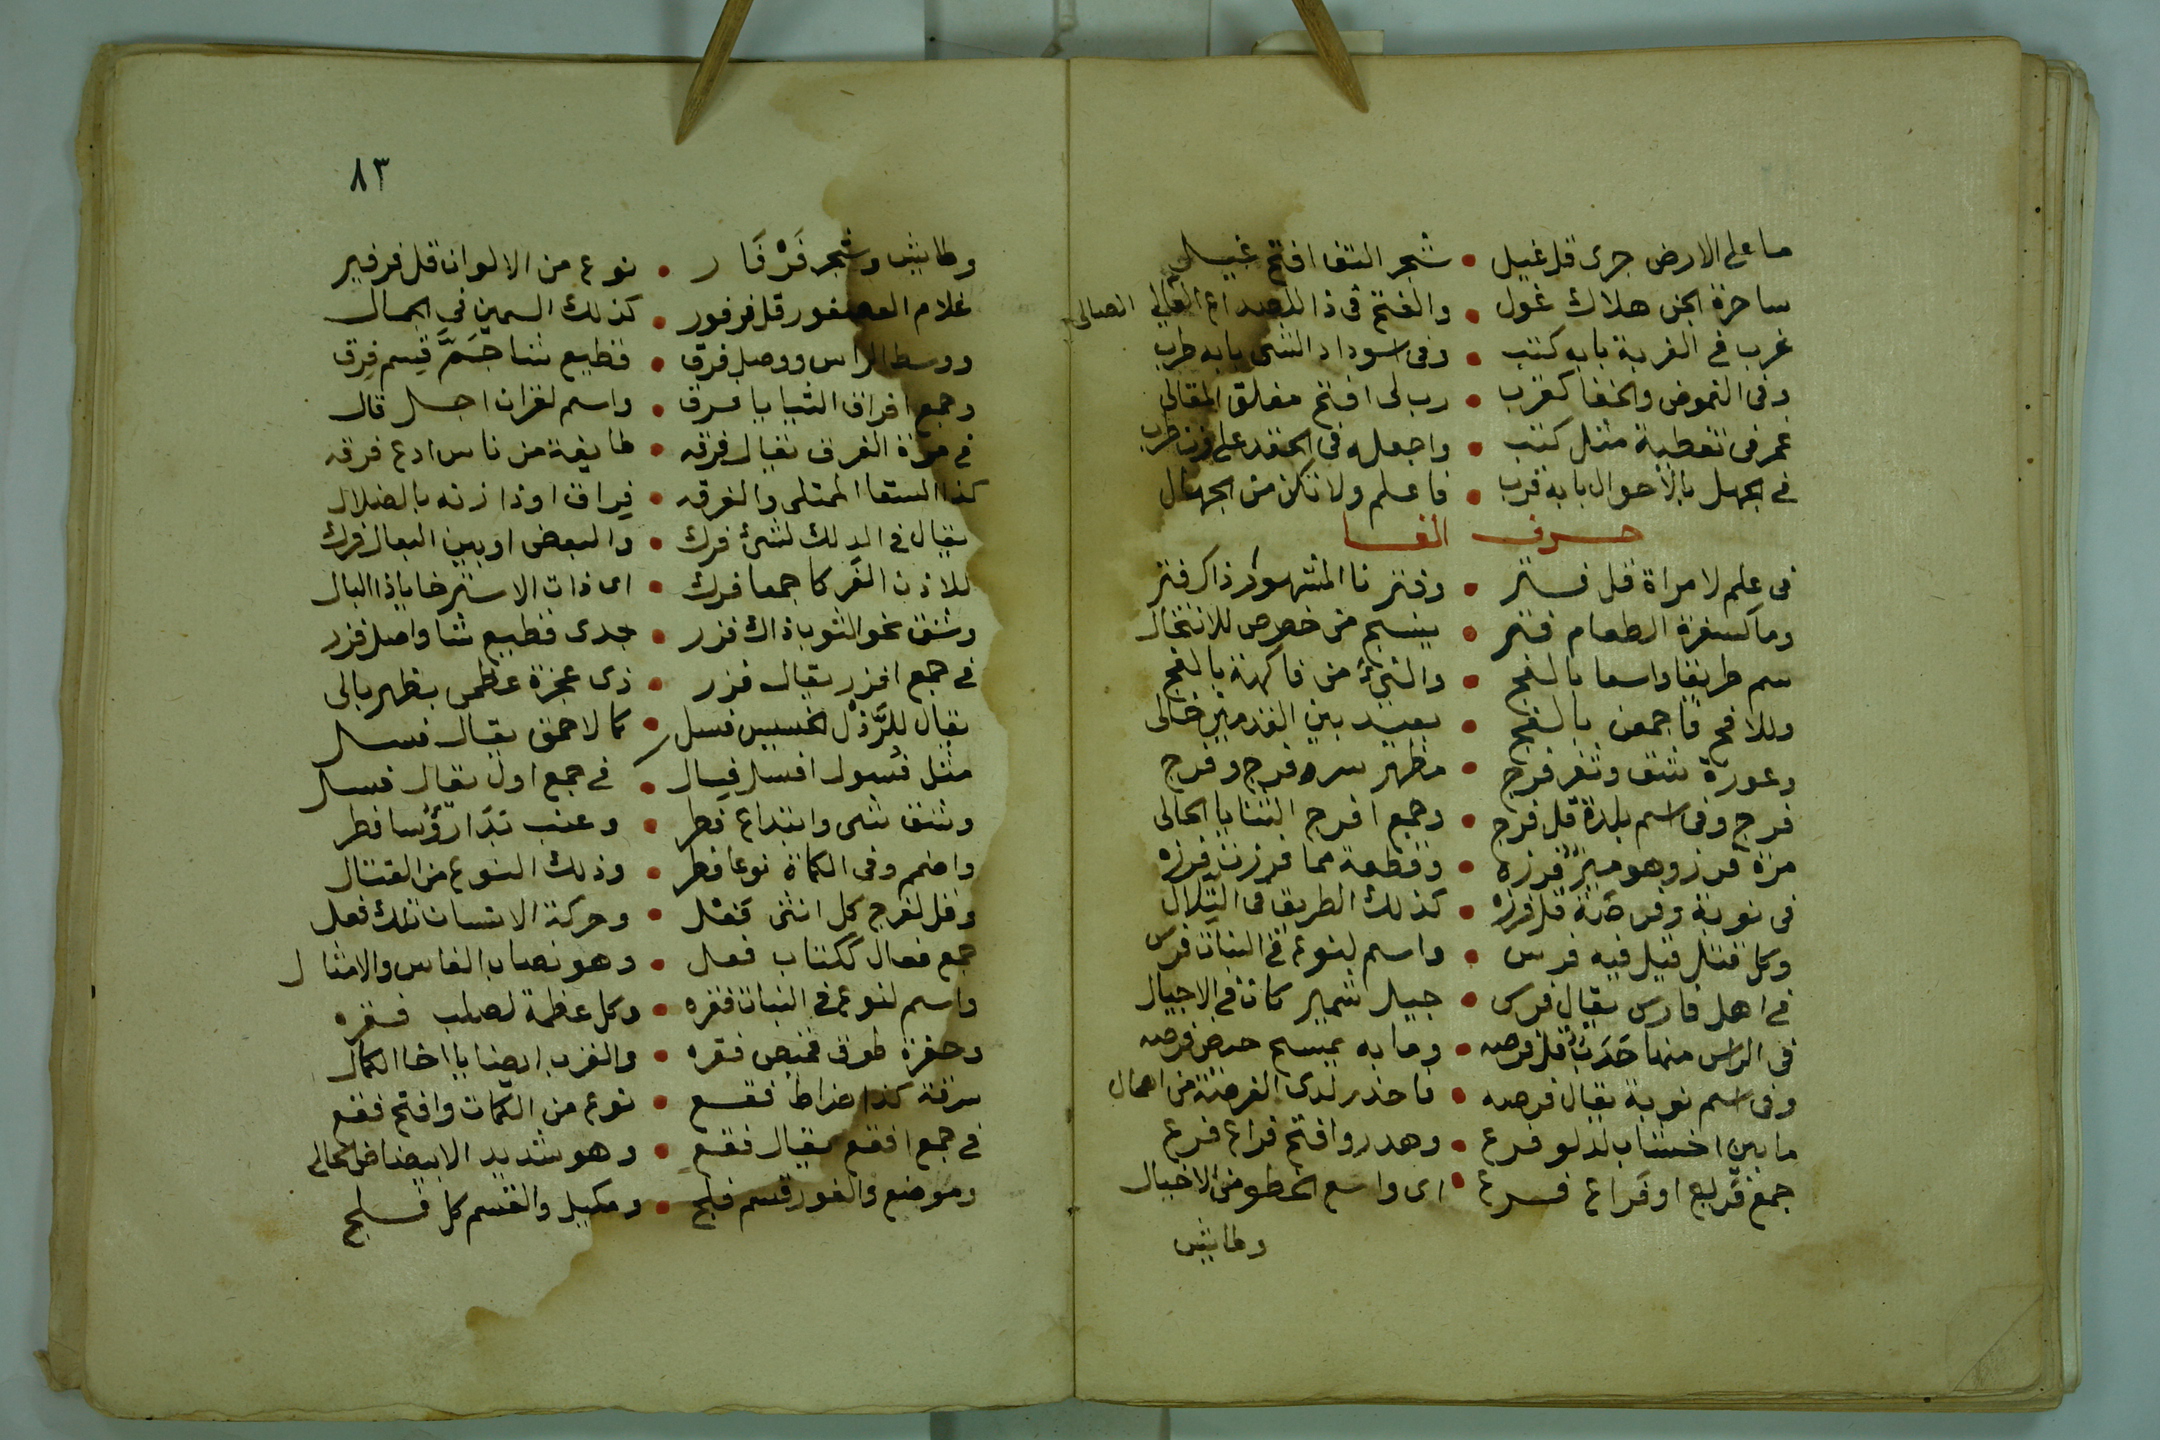 ما على الارض جرى قل غيل • شجر التف افتح غيل
ساحرة الجن هلاك غول • والفتح فى ذا
غرب فى الغربة بابه كتب • وفى سوداد الشى بابه طرب
وفى الغموض والخفا كغرب • رب لى افتح مغلق المقالى
غمر فى تغطية مثل كتب • واجعله فى الحقد على وزن طرب
فى الجهل بالأحوال بابه قرب • فاعلم ولا تكن من الجهال
حرف الفا
فى علم لامراة قل فستر • وفتر نا المشهور ذاكر فتر
وما كسفرة الطعام فتر • ينسج من خوص للانتخال
سم طريقا واسعا بالفج • والنيء من فاكهة بالفج
وللافج فاجمعن بالفج • بعيد بين القدمين خالى
وعورة شق وثغر فرج • مظهر سره فرج وفرج
فرج وفى اسم بلدة قل فرج • وجمع افرج الثنايا الحالى
مرة فرز وهو ميز فرزه • وقطعة مما فرزت فرزه
فى نوبة وفرصة قل فرزه • كذلك الطريق فى التلال
وكل قتل قيل فيه فرس • واسم لنوع فى النبات فرس
فى اهل فارس يقال فرس • جيل شهير كان فى الاجيال
فى الراس منها حدب قل فرصه • وما به يمسح حيض فرصه
وفى اسم نوبة يقال فرصه • فاحذر لدى الفرصة من اهمال
ما بين اخشاب لدلو فرغ • وهدر وافتح فراغ فرغ
جمع فريغ او فراغ فرغ • اى واسع الخطو من الاخيال
وطايش
٨٣
وطايش وشجر فَرْفَار • نوع من الالوان قل فرفير
غلام العصفور قل فرفور • كذلك السمين فى الجمال
ووسط الراس ووصل فرق • قطيع شا جَمَّ قسم فرق
وجمع افراق الثنايا فرق • واسم لقران اجل قال
فى مرة الفرق يقال فرقه • طايفة من ناس ادع فرقه
كذا السقا الممتلى والفرقه • فراق اوذا زنه بالضلال
يقال فى الدلك لشئ فرك • والبغض او بين البعال فرك
للاذن الفركا جمعا فرك • اى ذات الاسترخا ياذا البال
وشق نحو الثوب ذاك فزر • جدى قطيع شا واصل فزر
فى جمع افزر يقال فزر • ذى عجزة عظمى بظهر بالى
يقال للرَّذْل الخسيس فسل • كالاحمق يقال فسل
مثل فسول افسل فسال • فى جمع اول يقال فسل
وشق شى وابتداع فطر • وعنب بَدَا رؤسا فطر
واضمم وفى الكماة نوعا فطر • وذلك النوع من القتال
وقل لفرج كل انثى فَعْل • وحركة الانسان تلك فعل
جمع فعال ككتاب فعل • وهو نصاب الفاس والامثال
واسم لنوع فى النبات فقره • وكل عظمة لصلب فقره
وحفرة طوق قميص فقره • والقرب ايضا يا اخا الكمال
سرقة كذا ضراط فقع • نوع من الكمات وافتح فقع
فى جمع افقع يقال فقع • وهو شديد الابيضاض الحالى
وموضع والفوز قسم فلج • ومكيل والقسم كل فلج